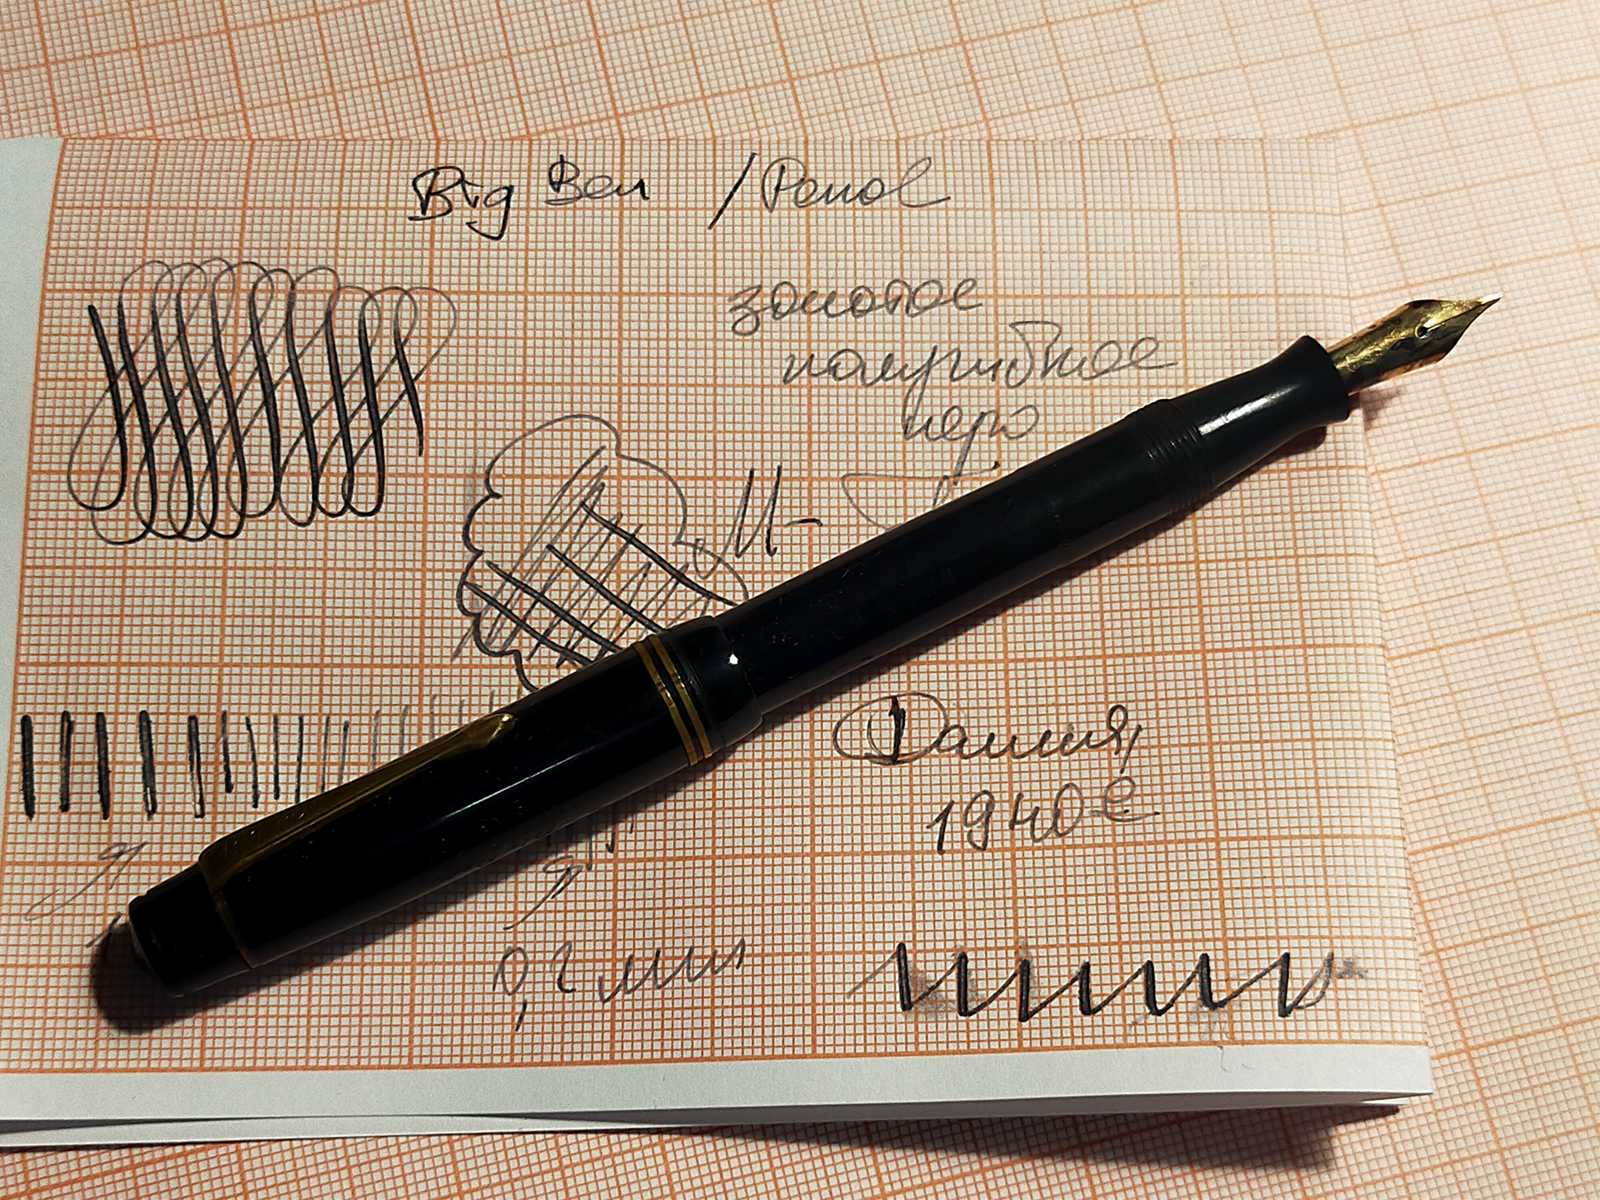 Big Ben / Penol
золотое
полугибкое
перо
M-
Дания,
1940е
0,2 мм